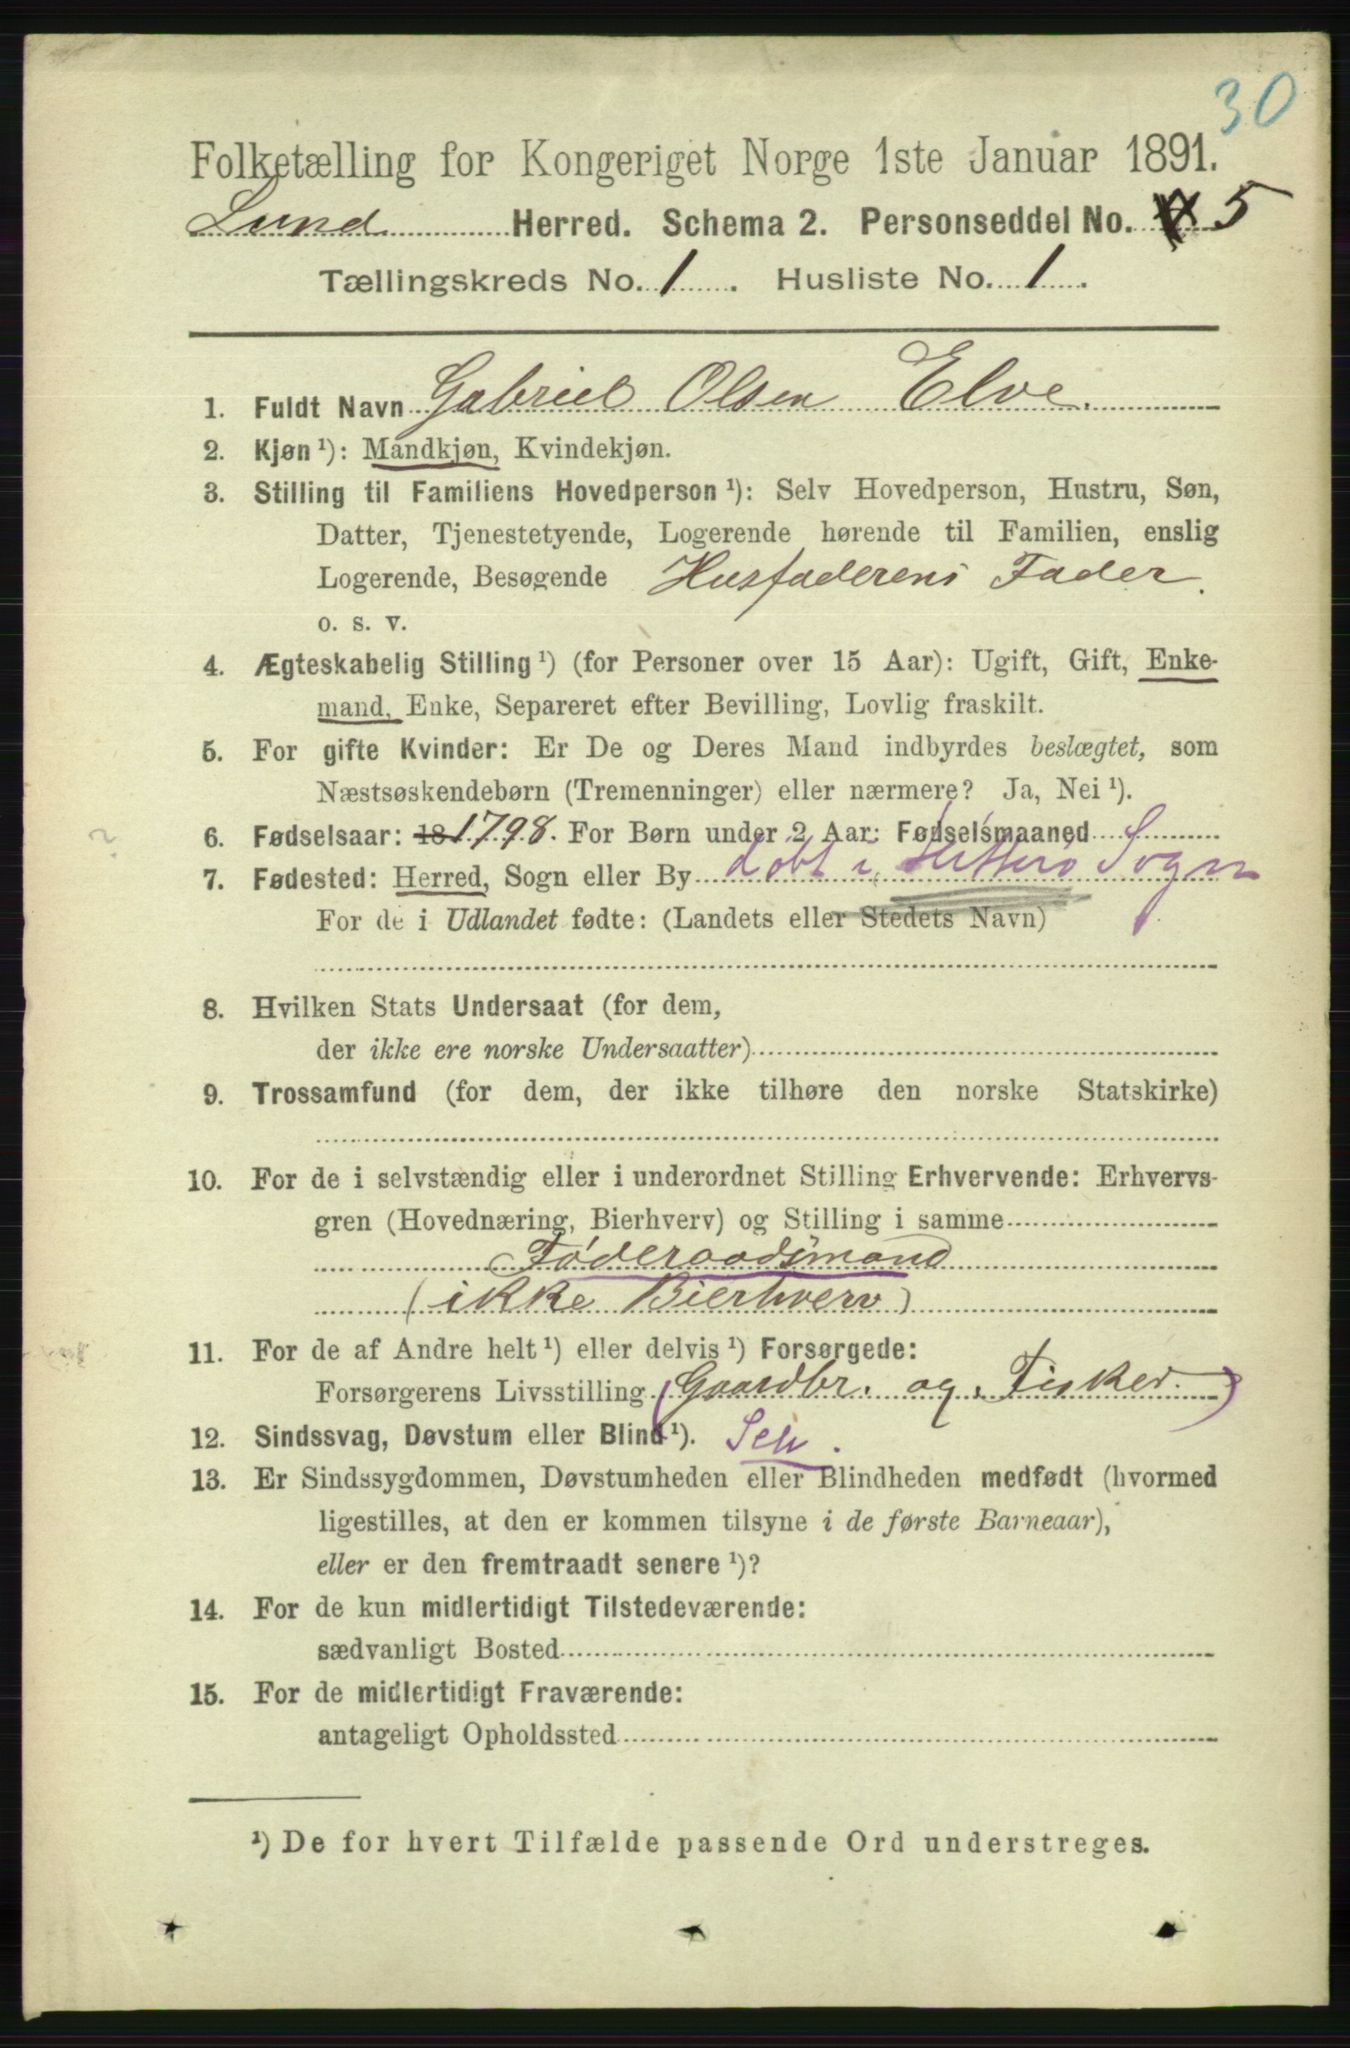 30
Folketælling for Kongeriget Norge 1ste Januar 1891.
Lund Herred. Schema 2. Personseddel No. 5
Tællingskreds No. 1. Husliste No. 1.
1. Fuldt Navn Gabriel Olsen Elve.
2. Kjøn ¹): Mandkjøn, Kvindekjøn.
3. Stilling til Familiens Hovedperson ¹): Selv Hovedperson, Hustru, Søn,
Datter, Tjenestetyende, Logerende hørende til Familien, enslig
Logerende, Besøgende Husfaderens Fader.
o. s. v.
4. Ægteskabelig Stilling ¹) (for Personer over 15 Aar): Ugift, Gift, Enke-
mand, Enke, Separeret efter Bevilling, Lovlig fraskilt.
5. For gifte Kvinder: Er De og Deres Mand indbyrdes beslægtet, som
Næstsøskendebørn (Tremenninger) eller nærmere? Ja, Nei ¹).
6. Fødselsaar: 18 1798. For Børn under 2 Aar: Fødselsmaaned
7. Fødested: Herred, Sogn eller By døbt i Hitterø Sogn
For de i Udlandet fødte: (Landets eller Stedets Navn)
8. Hvilken Stats Undersaat (for dem,
der ikke ere norske Undersaatter)
9. Trossamfund (for dem, der ikke tilhøre den norske Statskirke)
10. For de i selvstændig eller i underordnet Stilling Erhvervende: Erhvervs-
gren (Hovednæring, Bierhverv) og Stilling i samme
Føderaadsmand
(ikke Bierhverv)
11. For de af Andre helt ¹) eller delvis ¹) Forsørgede:
Forsørgerens Livsstilling (Gaardbr. og Fisker.)
12. Sindssvag, Døvstum eller Blind ¹). Selv.
13. Er Sindssygdommen, Døvstumheden eller Blindheden medfødt (hvormed
ligestilles, at den er kommen tilsyne i de første Barneaar),
eller er den fremtraadt senere ¹)?
14. For de kun midlertidigt Tilstedeværende:
sædvanligt Bosted
15. For de midlertidigt Fraværende:
antageligt Opholdssted
¹) De for hvert Tilfælde passende Ord understreges.